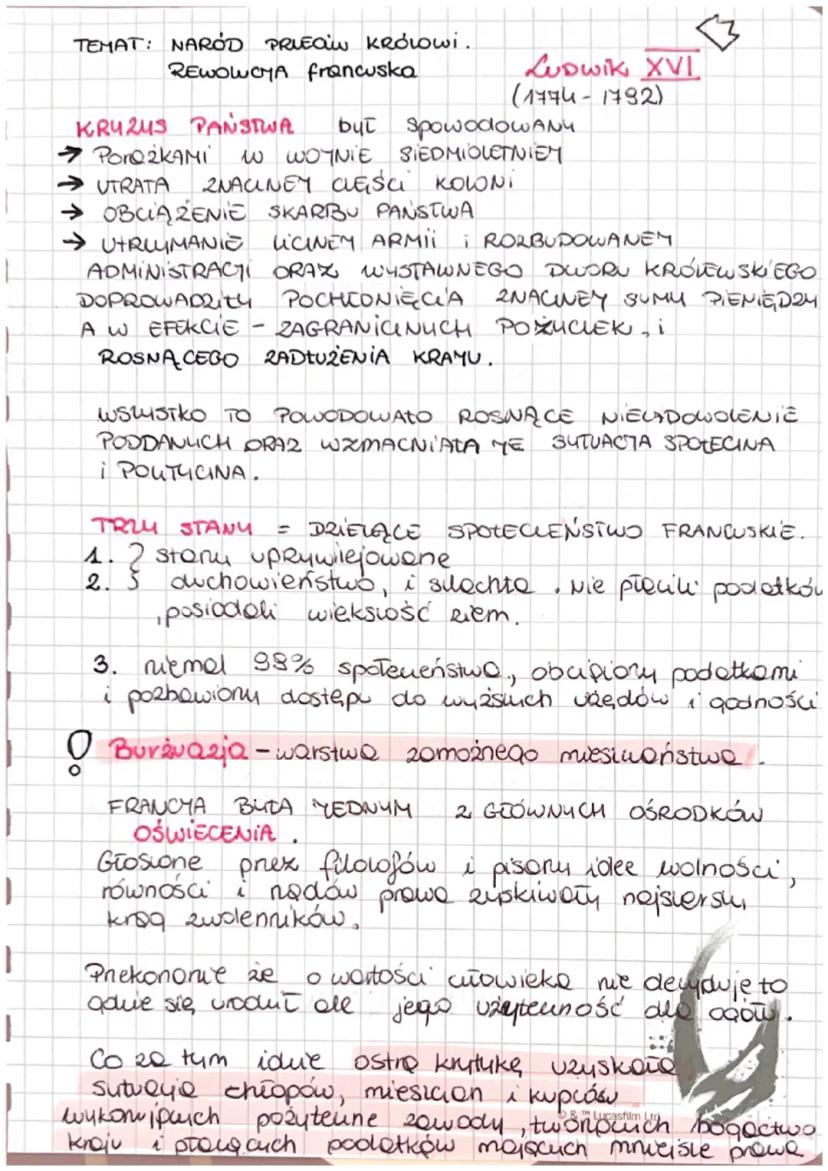 TEMAT: NARÓD PRZECIW KRÓLOWI.
REWOLUCJA francuska
LUDWIK XVI
(1774 - 1792)
KRYZYS PAŃSTWA był SPOWODOWANY
→ PORAŻKAMI W WOJNIE SIEDMIOLETNIEJ
→ UTRATA ZNACZNEJ CZĘŚCI KOLONI
→ OBCIĄŻENIE SKARBU PAŃSTWA
→ UTRZYMANIE LICZNEJ ARMII i ROZBUDOWANEJ
ADMINISTRACJI ORAZ WYSTAWNEGO DWORU KRÓLEWSKIEGO
DOPROWADZIŁY POCHŁONIĘCIA ZNACZNEJ SUMY PIENIĘDZY
A W EFEKCIE - ZAGRANICZNYCH POŻYCZEK, i
ROSNĄCEGO ZADŁUŻENIA KRAJU.
WSZYSTKO TO POWODOWAŁO ROSNĄCE NIEZADOWOLENIE
PODDANYCH ORAZ WZMACNIAŁA JE SYTUACJA SPOŁECZNA
i POLITYCZNA.
TRZY STANY = DZIELĄCE SPOŁECZEŃSTWO FRANCUSKIE.
1. } stany uprzywilejowane
2. } duchowieństwo, i szlachta. Nie płacili podatków
, posiadali większość ziem.
3. niemal 98% społeczeństwa, obciążony podatkami
i pozbawiony dostępu do wyższych urzędów i godności
! Burżuazja - warstwa zamożnego mieszczaństwa.
FRANCJA BYŁA JEDNYM Z GŁÓWNYCH OŚRODKÓW
OŚWIECENIA.
Głoszone przez filozofów i pisarzy idee wolności,
równości i rządów prawa zyskiwały najszerszy
krąg zwolenników.
Przekonanie że o wartości człowieka nie decyduje to
gdzie się urodził ale jego użyteczność dla ogółu.
Co za tym idzie ostrą krytykę uzyskała
sytuacja chłopów, mieszczan i kupców
wykonujących pożyteczne zawody, tworzących bogactwo
kraju i płacących podatków mających mniejsze prawa
© & ™ Lucasfilm Ltd